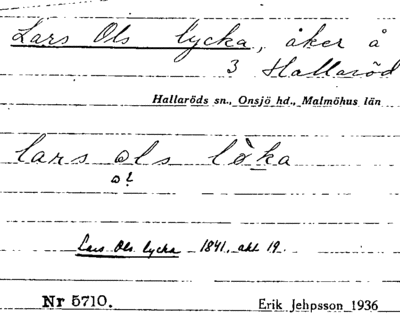 Lars Ols lycka, åker å
3 Hallaröd
Hallaröds sn., Onsjö hd., Malmöhus län
lars ols lòka
Lars Ols lycka 1841, akt 19.
Nr 5710.
Erik Jehpsson 1936